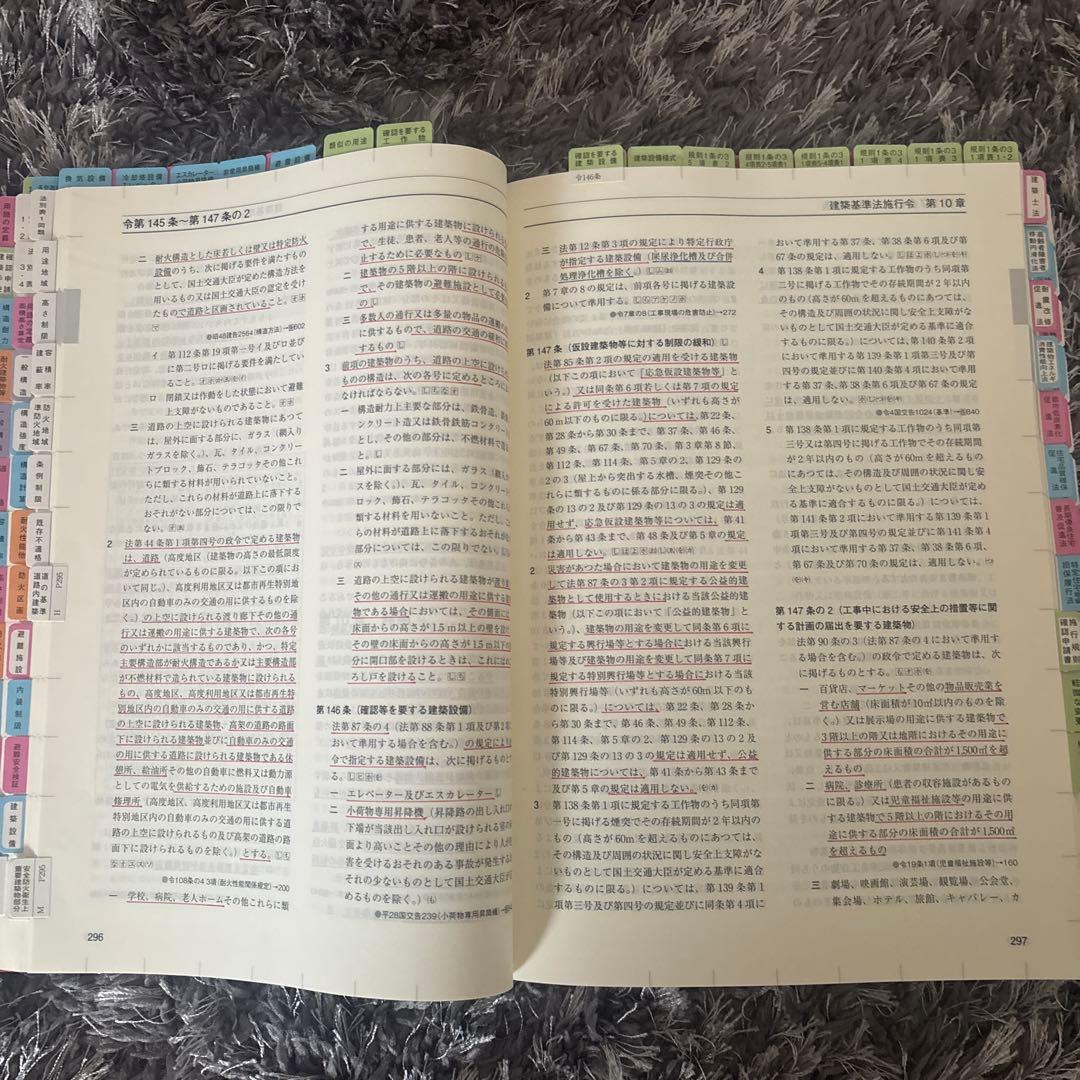 類似の用途
確認を要する
工作物
換気設備
冷却塔設備
エスカレーター
非常用昇降機
避雷設備
確認を要する
建築設備
建築設備様式
規則1条の3
5項
規則1条の3
4項表2・5項表1
規則1条の3
1項表5・4項表1
規則1条の3
1項表4
規則1条の3
1項表3
規則1条の3
1項表1・2
令146条
令第145条〜第147条の2
二 耐火構造とした床若しくは壁又は特定防火
設備のうち、次に掲げる要件を満たすもの
として、国土交通大臣が定めた構造方法を
用いるもの又は国土交通大臣の認定を受け
たもので道路と区画されていること。
●昭48建告2564(構造方法)→告602
イ 第112条第19項第一号イ及びロ並び
に第二号ロに掲げる要件を満たしてい
ること。
ロ 閉鎖又は作動をした状態において避難
上支障がないものであること。
三 道路の上空に設けられる建築物にあって
は、屋外に面する部分に、ガラス(網入り
ガラスを除く。)、瓦、タイル、コンクリー
トブロック、飾石、テラコッタその他これ
らに類する材料が用いられていないこと。
ただし、これらの材料が道路上に落下する
おそれがない部分については、この限りで
ない。
2 法第44条第1項第四号の政令で定める建築物
は、道路(高度地区(建築物の高さの最低限度
が定められているものに限る。以下この項にお
いて同じ。)、高度利用地区又は都市再生特別地
区内の自動車のみの交通の用に供するものを除
く。)の上空に設けられる渡り廊下その他の通
行又は運搬の用途に供する建築物で、次の各号
のいずれかに該当するものであり、かつ、特定
主要構造部が耐火構造であるか又は主要構造部
が不燃材料で造られている建築物に設けられる
もの、高度地区、高度利用地区又は都市再生特
別地区内の自動車のみの交通の用に供する道路
の上空に設けられる建築物、高架の道路の路面
下に設けられる建築物並びに自動車のみの交通
の用に供する道路に設けられる建築物である休
憩所、給油所その他の自動車に燃料又は動力源
としての電気を供給するための施設及び自動車
修理所(高度地区、高度利用地区又は都市再生
特別地区内の自動車のみの交通の用に供する道
路の上空に設けられるもの及び高架の道路の路
面下に設けられるものを除く。)とする。
●令108条の4 3項(耐火性能関係規定)→200
一 学校、病院、老人ホームその他これらに類
する用途に供する建築物に設けられる
で、生徒、患者、老人等の通行の危険を
止するために必要なもの
二 建築物の5階以上の階に設けられるもの
で、その建築物の避難施設として必要な
の
三 多数人の通行又は多量の物品の運搬の
に供するもので、道路の交通の緩和に
3 前項の建築物のうち、道路の上空に設けられ
るものの構造は、次の各号に定めるところによ
らなければならない。
一 構造耐力上主要な部分は、鉄骨造、鉄筋
コンクリート造又は鉄骨鉄筋コンクリート
とし、その他の部分は、不燃材料で造る
こと。
二 屋外に面する部分には、ガラス(網入り
スを除く。)、瓦、タイル、コンクリート
ロック、飾石、テラコッタその他これらに
類する材料を用いないこと。ただし、これ
の材料が道路上に落下するおそれがない
部分については、この限りでない。
三 道路の上空に設けられる建築物が渡り廊
その他の通行又は運搬の用途に供する建築
物である場合においては、その側面には、
床面からの高さが1.5m以上の壁を設け、
その壁の床面からの高さが1.5m以下の
分に開口部を設けるときは、これにはめ
ろし戸を設けること。
第146条(確認等を要する建築設備)
法第87条の4(法第88条第1項及び第2項
おいて準用する場合を含む。)の規定により
令で指定する建築設備は、次に掲げるもの
る。
一 エレベーター及びエスカレーター
二 小荷物専用昇降機(昇降路の出し入れ口の
下端が当該出し入れ口が設けられる室の床
面より高いことその他の理由により人が危
害を受けるおそれのある事故が発生するお
れの少ないものとして国土交通大臣が
ものを除く。)
●平28国交告239(小荷物専用昇降機)
296
建築基準法施行令 第10章
三 法第12条第3項の規定により特定行政庁
が指定する建築設備(屎尿浄化槽及び合併
処理浄化槽を除く。)
2 第7章の8の規定は、前項各号に掲げる建築設
備について準用する。
●令7章の8(工事現場の危害防止)→272
第147条(仮設建築物等に対する制限の緩和)
法第85条第2項の規定の適用を受ける建築物
(以下この項において「応急仮設建築物等」と
いう。)又は同条第6項若しくは第7項の規定
による許可を受けた建築物(いずれも高さが
60m以下のものに限る。)については、第22条、
第28条から第30条まで、第37条、第46条、
第49条、第67条、第70条、第3章第8節、
第112条、第114条、第5章の2、第129条の
2の3(屋上から突出する水槽、煙突その他こ
れらに類するものに係る部分に限る。)、第129
条の13の2及び第129条の13の3の規定は適
用せず、応急仮設建築物等については、第41
条から第43条まで、第48条及び第5章の規定
は適用しない。
2 災害があつた場合において建築物の用途を変更
して法第87条の3第2項に規定する公益的建
築物として使用するときにおける当該公益的建
築物(以下この項において「公益的建築物」と
いう。)、建築物の用途を変更して同条第6項に
規定する興行場等とする場合における当該興行
場等及び建築物の用途を変更して同条第7項に
規定する特別興行場等とする場合における当該
特別興行場等(いずれも高さが60m以下のも
のに限る。)については、第22条、第28条か
ら第30条まで、第46条、第49条、第112条、
第114条、第5章の2、第129条の13の2及
び第129条の13の3の規定は適用せず、公益
的建築物については、第41条から第43条まで
及び第5章の規定は適用しない。
3 第138条第1項に規定する工作物のうち同項第
一号に掲げる煙突でその存続期間が2年以内の
もの(高さが60mを超えるものにあつては、
その構造及び周囲の状況に関し安全上支障がな
いものとして国土交通大臣が定める基準に適合
するものに限る。)については、第139条第1
項第三号及び第四号の規定並びに同条第4項に
おいて準用する第37条、第38条第6項及び第
67条の規定は、適用しない。
4 第138条第1項に規定する工作物のうち同項第
二号に掲げる工作物でその存続期間が2年以内
のもの(高さが60mを超えるものにあつては、
その構造及び周囲の状況に関し安全上支障がな
いものとして国土交通大臣が定める基準に適合
するものに限る。)については、第140条第2項
において準用する第139条第1項第三号及び第
四号の規定並びに第140条第4項において準用
する第37条、第38条第6項及び第67条の規定
は、適用しない。
●令4国交告1024(基準)→告840
5 第138条第1項に規定する工作物のうち同項第
三号又は第四号に掲げる工作物でその存続期間
が2年以内のもの(高さが60mを超えるもの
にあつては、その構造及び周囲の状況に関し安
全上支障がないものとして国土交通大臣が定め
る基準に適合するものに限る。)については、
第141条第2項において準用する第139条第1
項第三号及び第四号の規定並びに第141条第4
項において準用する第37条、第38条第6項、
第67条及び第70条の規定は、適用しない。
第147条の2(工事中における安全上の措置等に関
する計画の届出を要する建築物)
法第90条の3(法第87条の4において準用す
る場合を含む。)の政令で定める建築物は、次
に掲げるものとする。
一 百貨店、マーケットその他の物品販売業を
営む店舗(床面積が10㎡以内のものを除
く。)又は展示場の用途に供する建築物で
3階以上の階又は地階におけるその用途に
供する部分の床面積の合計が1,500㎡を超
えるもの
二 病院、診療所(患者の収容施設があるもの
に限る。)又は児童福祉施設等の用途に供
する建築物で5階以上の階におけるその用
途に供する部分の床面積の合計が1,500㎡
を超えるもの
●令19条1項(児童福祉施設等)→160
三 劇場、映画館、演芸場、観覧場、公会堂、
集会場、ホテル、旅館、キャバレー、カ
297
用語の定義
法別表1・問題
用途地域
高さ制限
容積率
建蔽率
防火地域
準防火地域
条例制限
既存不適格
道の基準
道路内建築
P295
H
構造耐力
一般構造
構造強度
構造計算
耐火性能他
防火区画
避難施設
内装制限
避難安全検証
建築設備
安全防火衛生上
重要建築物部分
P295
M
建築士法
高齢者障害者
移動円滑化法
耐震改修
促進法
都市低炭素化
促進法
住宅品質確保
促進法
長期優良住宅
普及促進法
特定住宅瑕疵
担保履行法
施行規則
確認申請書
軽微な変更